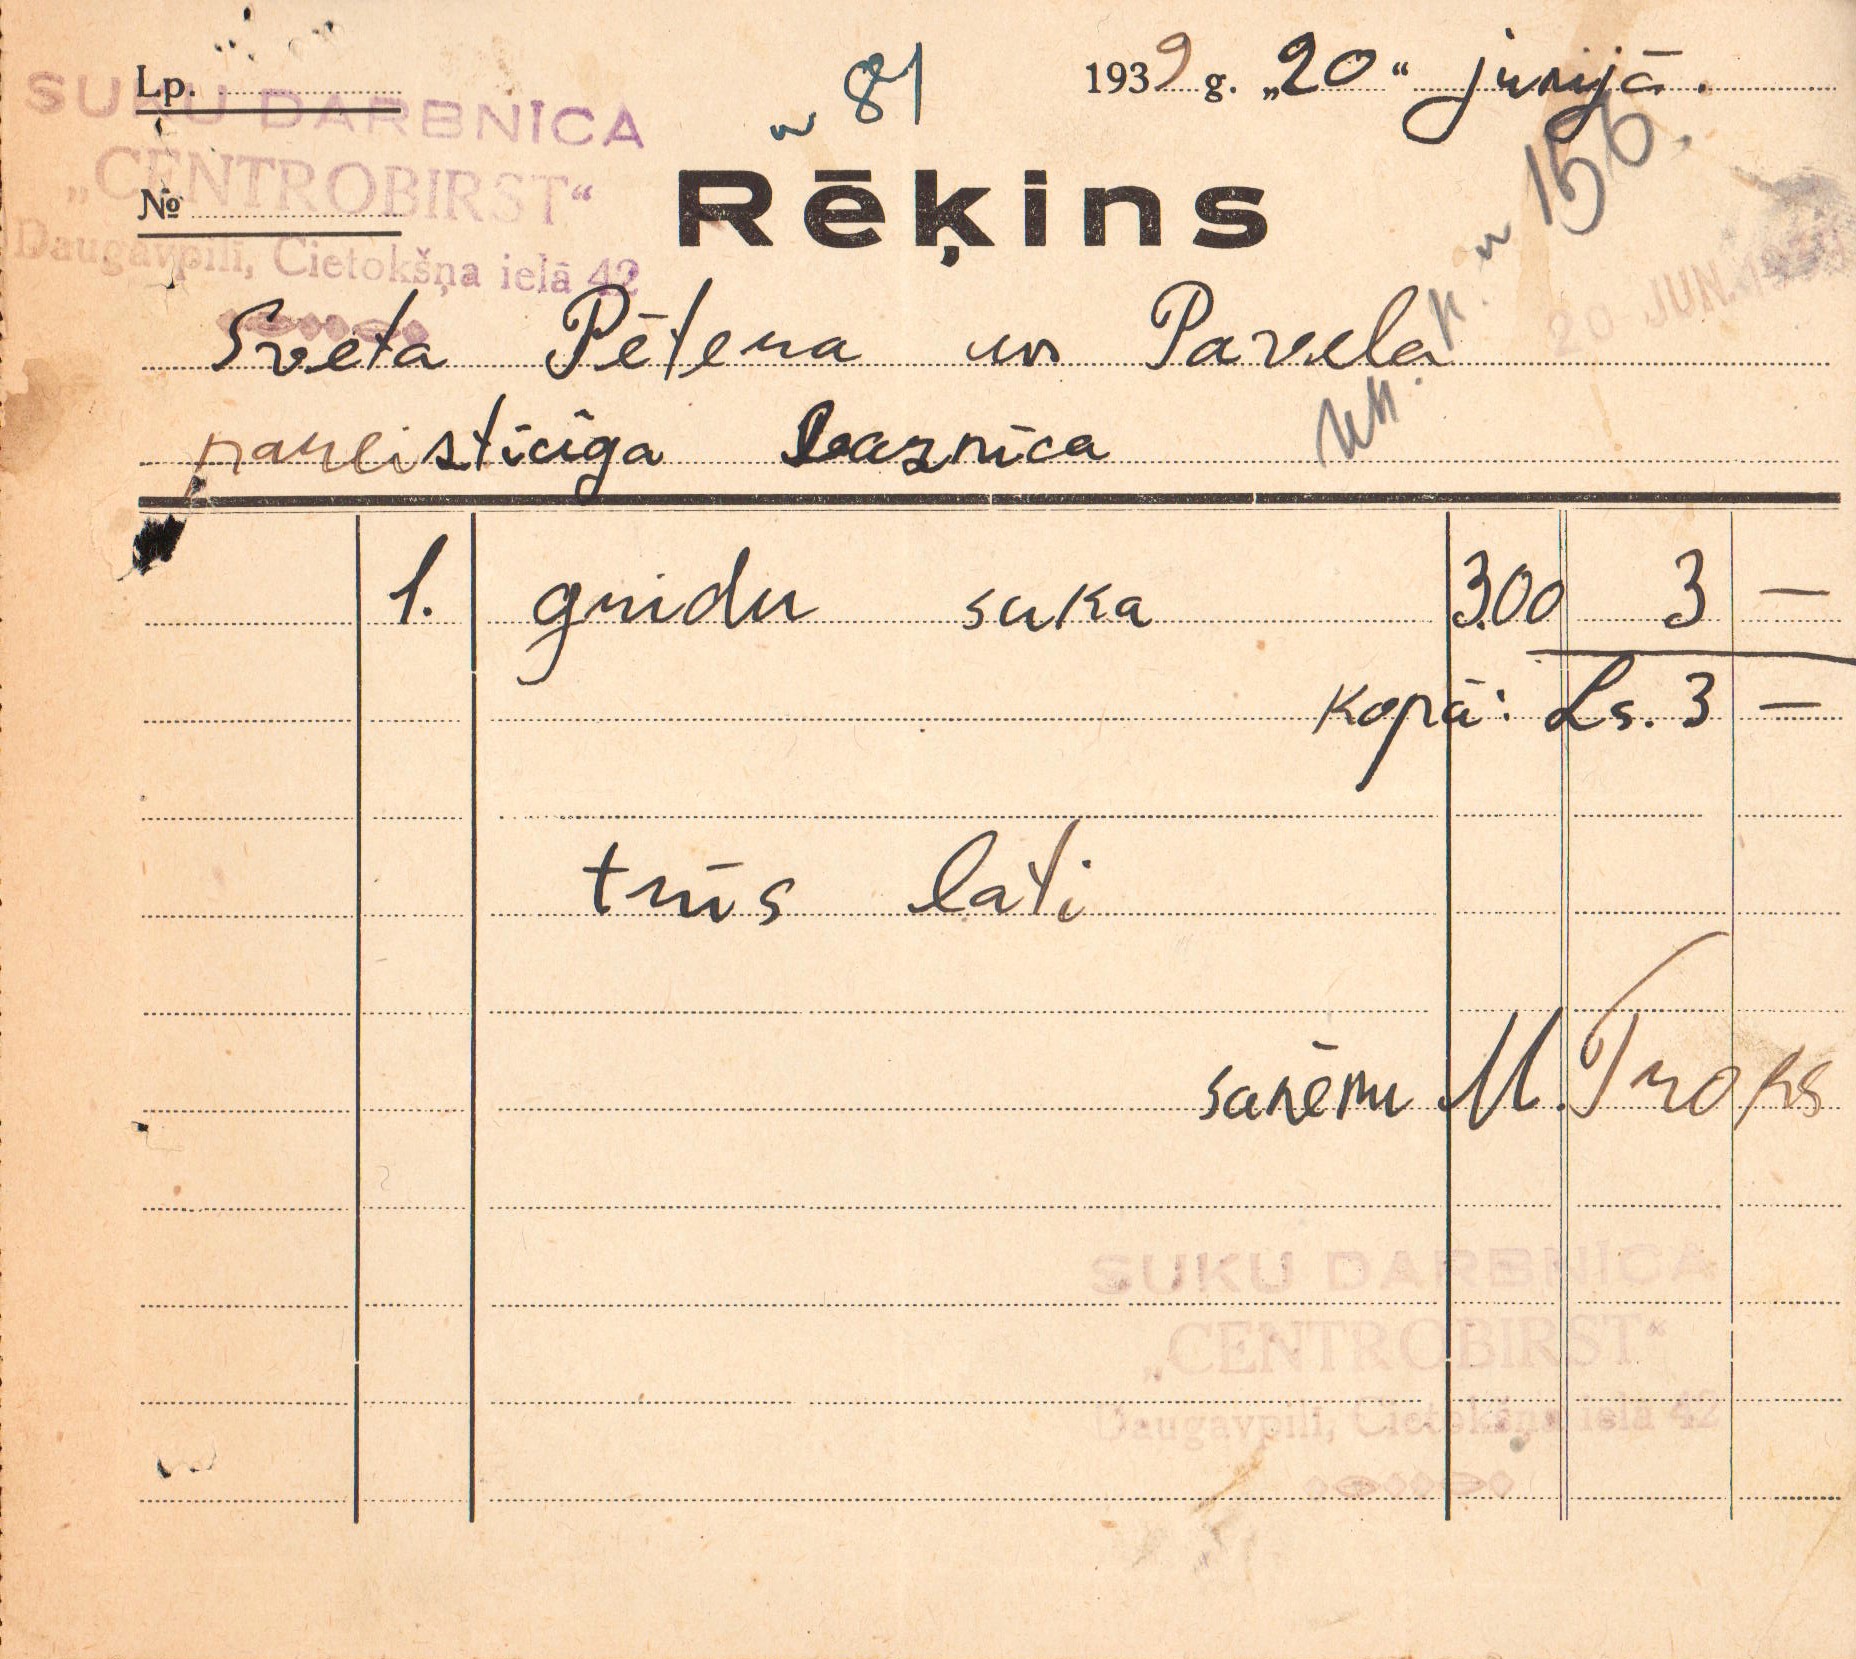 Lp.
SUKU DARBNĪCA
„CENTROBIRST“
№
Daugavpilī, Cietokšņa ielā 42
№ 81
1939 g. „20“ jūnijā.
Rēķins
№ 156.
20 JUN. 1939
Svēta Pētera un Pavela
pareisticīga baznīca
1. grīdu suka 3.00 3 —
kopā: Ls. 3 —
trīs lati
saņēmu M. Troks
SUKU DARBNĪCA
„CENTROBIRST“
Daugavpilī, Cietokšņa ielā 42